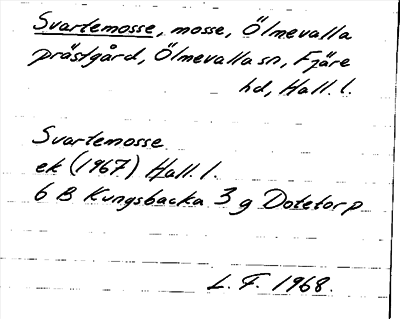 Svartemosse, mosse, Ölmevalla
prästgård, Ölmevalla sn, Fjäre
hd, Hall. l.
Svartemosse
ek (1967) Hall. l.
6 B Kungsbacka 3 g Dotetorp
L. F. 1968.